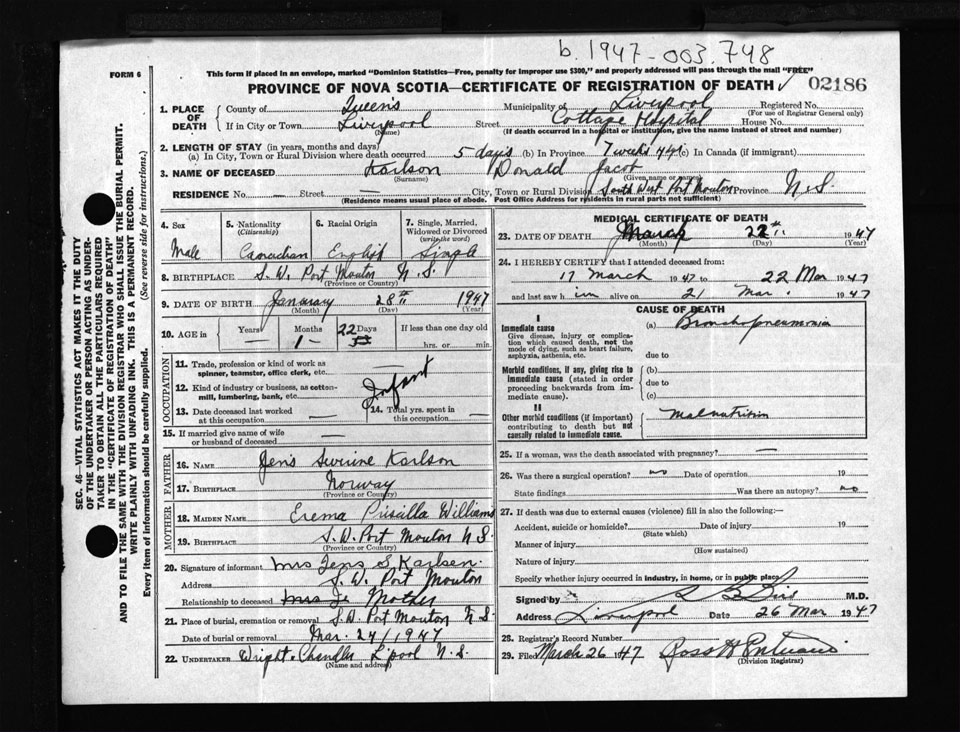 b. 1947-003.748
FORM 6
This form if placed in an envelope, marked "Dominion Statistics—Free, penalty for improper use $300," and properly addressed will pass through the mail "FREE"
PROVINCE OF NOVA SCOTIA—CERTIFICATE OF REGISTRATION OF DEATH
02186
SEC. 46—VITAL STATISTICS ACT MAKES IT THE DUTY
OF THE UNDERTAKER OR PERSON ACTING AS UNDER-
TAKER TO OBTAIN ALL THE PARTICULARS REQUIRED
IN THE "CERTIFICATE OF REGISTRATION OF DEATH"
AND TO FILE THE SAME WITH THE DIVISION REGISTRAR WHO SHALL ISSUE THE BURIAL PERMIT.
WRITE PLAINLY WITH UNFADING INK. THIS IS A PERMANENT RECORD.
Every item of information should be carefully supplied. (See reverse side for instructions.)
1. PLACE OF DEATH
County of Queens Municipality of Liverpool Registered No.
(For use of Registrar General only)
If in City or Town Liverpool Street Cottage Hospital House No.
(Name) (If death occurred in a hospital or institution, give the name instead of street and number)
2. LENGTH OF STAY (in years, months and days)
(a) In City, Town or Rural Division where death occurred 5 days (b) In Province 7 weeks 4 d (c) In Canada (if immigrant)
3. NAME OF DECEASED Karlson Donald Jacob
(Surname) (Given name or names)
RESIDENCE No. — Street — City, Town or Rural Division South West Port Mouton Province N.S.
(Residence means usual place of abode. Post Office Address for residents in rural parts not sufficient)
4. Sex
Male
5. Nationality
(Citizenship)
Canadian
6. Racial Origin
English
7. Single, Married,
Widowed or Divorced
(write the word)
Single
8. BIRTHPLACE S.W. Port Mouton N.S.
(Province or Country)
9. DATE OF BIRTH January 28th 1947
(Month) (Day) (Year)
10. AGE in — Years 1 Months 22 Days If less than one day old
hrs. or min.
OCCUPATION
11. Trade, profession or kind of work as
spinner, teamster, office clerk, etc. —
12. Kind of industry or business, as cotton-
mill, lumbering, bank, etc. Infant
13. Date deceased last worked
at this occupation —
14. Total yrs. spent in
this occupation —
15. If married give name of wife
or husband of deceased —
FATHER
16. NAME Jens Karlson
17. BIRTHPLACE Norway
(Province or Country)
MOTHER
18. MAIDEN NAME Erema Priscilla Williams
19. BIRTHPLACE S.W. Port Mouton N.S.
(Province or Country)
20. Signature of informant Mrs Jens S Karlsen.
Address S.W. Port Mouton
Relationship to deceased Mother
21. Place of burial, cremation or removal S.W. Port Mouton N.S.
Date of burial or removal Mar. 24/1947
22. UNDERTAKER Wright & Chandler L'pool N.S.
(Name and address)
MEDICAL CERTIFICATE OF DEATH
23. DATE OF DEATH March 22nd 1947
(Month) (Day) (Year)
24. I HEREBY CERTIFY that I attended deceased from:
17 March 1947 to 22 Mar 1947
and last saw him alive on 21 Mar. 1947
CAUSE OF DEATH
I
Immediate cause
Give disease, injury or complica-
tion which caused death, not the
mode of dying, such as heart failure,
asphyxia, asthenia, etc.
(a) Bronchopneumonia
due to
Morbid conditions, if any, giving rise to
immediate cause (stated in order
proceeding backwards from im-
mediate cause).
(b)
due to
(c)
II
Other morbid conditions (if important)
contributing to death but not
causally related to immediate cause.
Malnutrition
25. If a woman, was the death associated with pregnancy? —
26. Was there a surgical operation? no Date of operation 19
State findings Was there an autopsy? no
27. If death was due to external causes (violence) fill in also the following:—
Accident, suicide or homicide? Date of injury 19
(State which)
Manner of injury
(How sustained)
Nature of injury
Specify whether injury occurred in industry, in home, or in public place
Signed by M.D.
Address Liverpool Date 26 Mar 1947
28. Registrar's Record Number
29. Filed March 26 1947 Ross H
(Division Registrar)